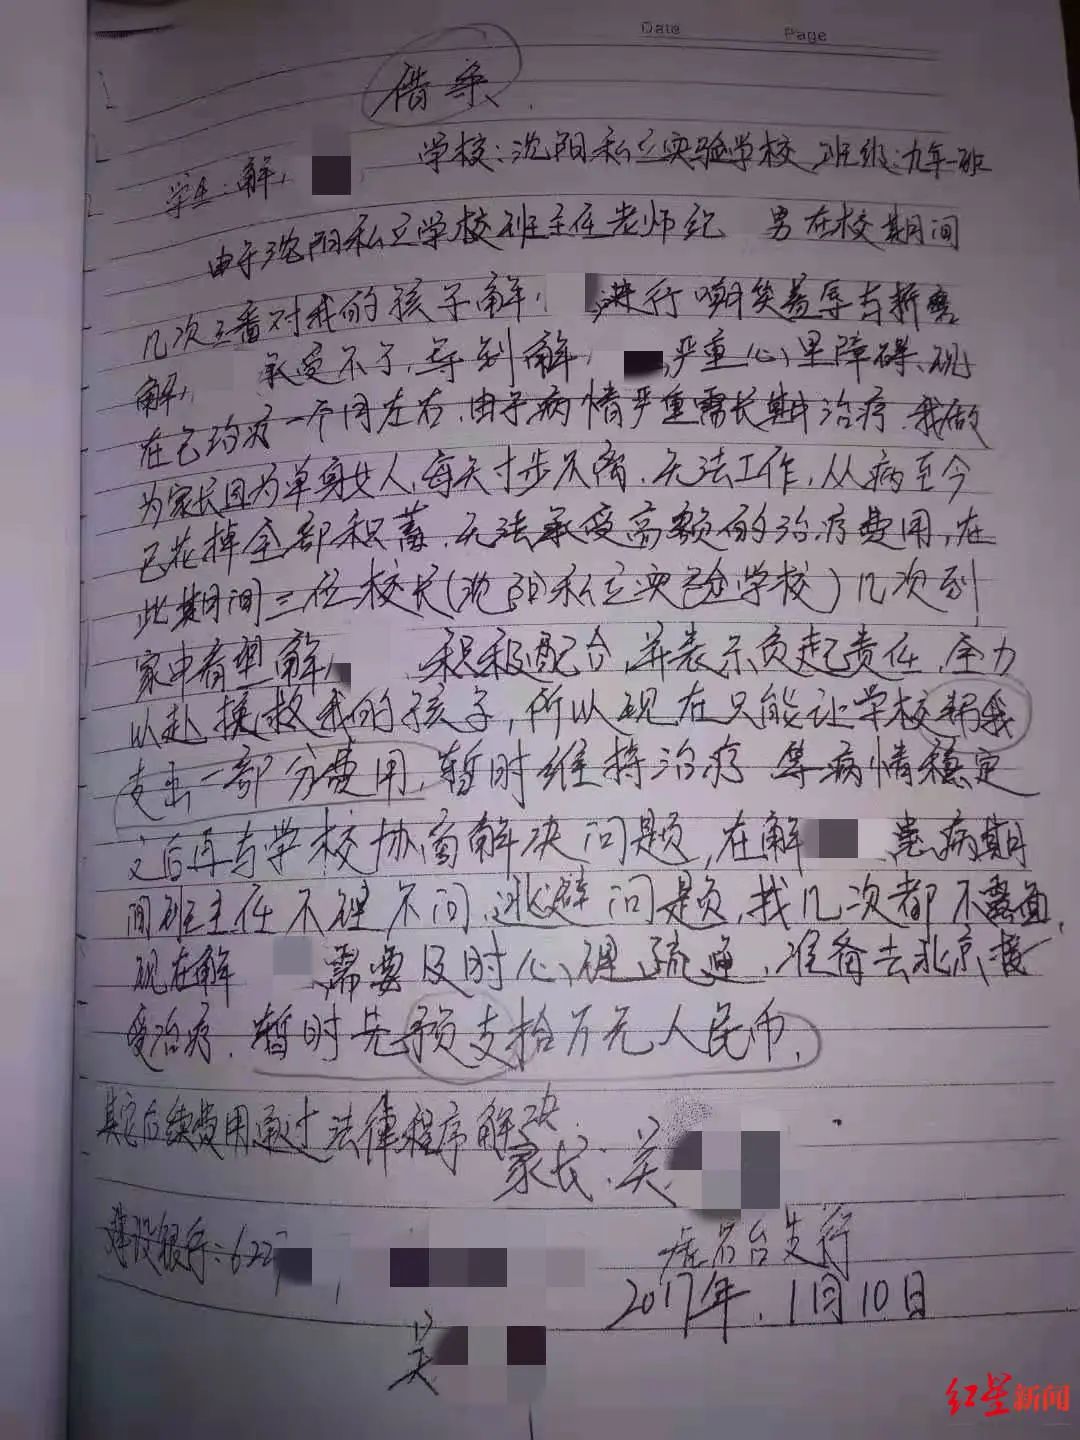 Date Page
借条
学校：沈阳私立实验学校 班级：九年一班
学生：解
由于沈阳私立学校班主任老师纪 男在校期间
几次三番对我的孩子解 进行嘲笑羞辱与折磨
解 承受不了，导到解 严重心里障碍、现
在已治疗一个月左右，由于病情严重需长期治疗，我做
为家长因为单身女人，每天寸步不离，无法工作，从病至今
已花掉全部积蓄，无法承受高额的治疗费用，在
此期间三位校长（沈阳私立实验学校）几次到
家中看望解 积极配合，并表示负起责任，全力
以赴拯救我的孩子，所以现在只能让学校帮我
支出一部分费用，暂时维持治疗 等病情稳定
之后再与学校协商解决问题，在解 患病期
间班主任不理不问，逃避问题，找几次都不露面，
现在解 需要及时心理疏通，准备去北京接
受治疗，暂时先预支拾万元人民币，
其它后续费用通过法律程序解决
家长：吴
建设银行：622 台支行
2017年，1月10日
吴
红星新闻